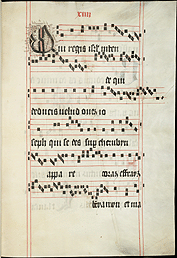 xiiii
Qui regis isrl inten
de qui
deducis uelud ouez io
seph qui sedes sup cherubyn
appa re coraz effrayz
beniamyn et ma